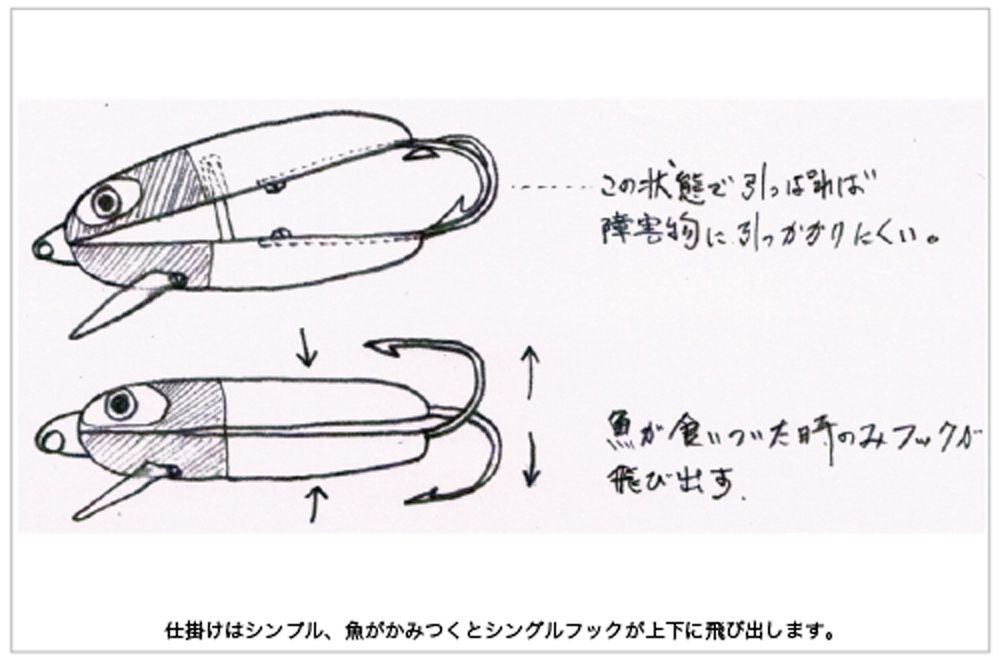 この状態で引っぱれば
障害物に引っかかりにくい。
魚が食いついた時のみフックが
飛び出す.
仕掛けはシンプル、魚がかみつくとシングルフックが上下に飛び出します。